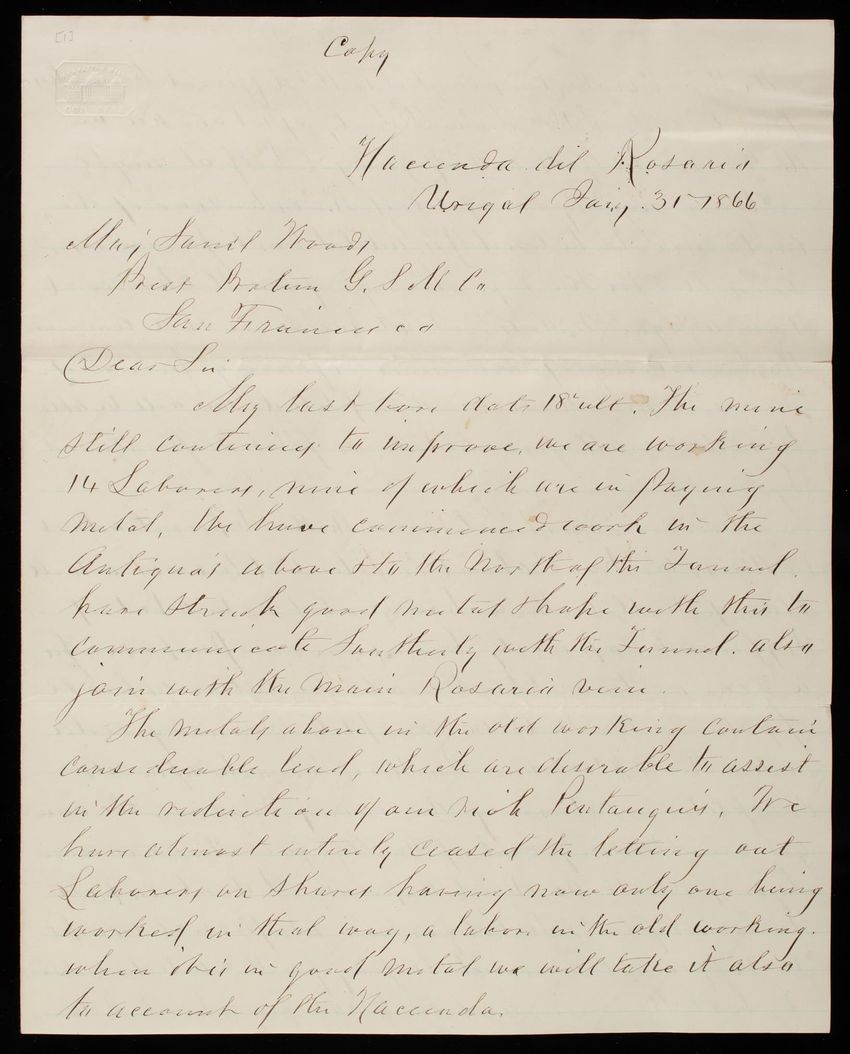 [1]
Copy
Hacienda del Rosario
Urigal Jany. 31 1866
Maj Saml Woods
Prest Protem G. S M Co
San Francisco
Dear Sir
My last bore date 18" ult. The mine
still continues to improve, we are working
14 Laborers, nine of which are in paying
metal, We have commenced work in the
Antiguas above & to the North of the Tunnel.
have struck good metal & hope with this to
communicate Southerly with the Tunnel. also
join with the main Rosario vein.
The metals above in the old working contain
considerable lead, which are desirable to assist
in the reduction of our rich Pentanquis. We
have almost entirely ceased the letting out
Laborers on shares having now only one being
worked in that way, a labor in the old working.
when it is in good metal we will take it also
to account of the Hacienda.